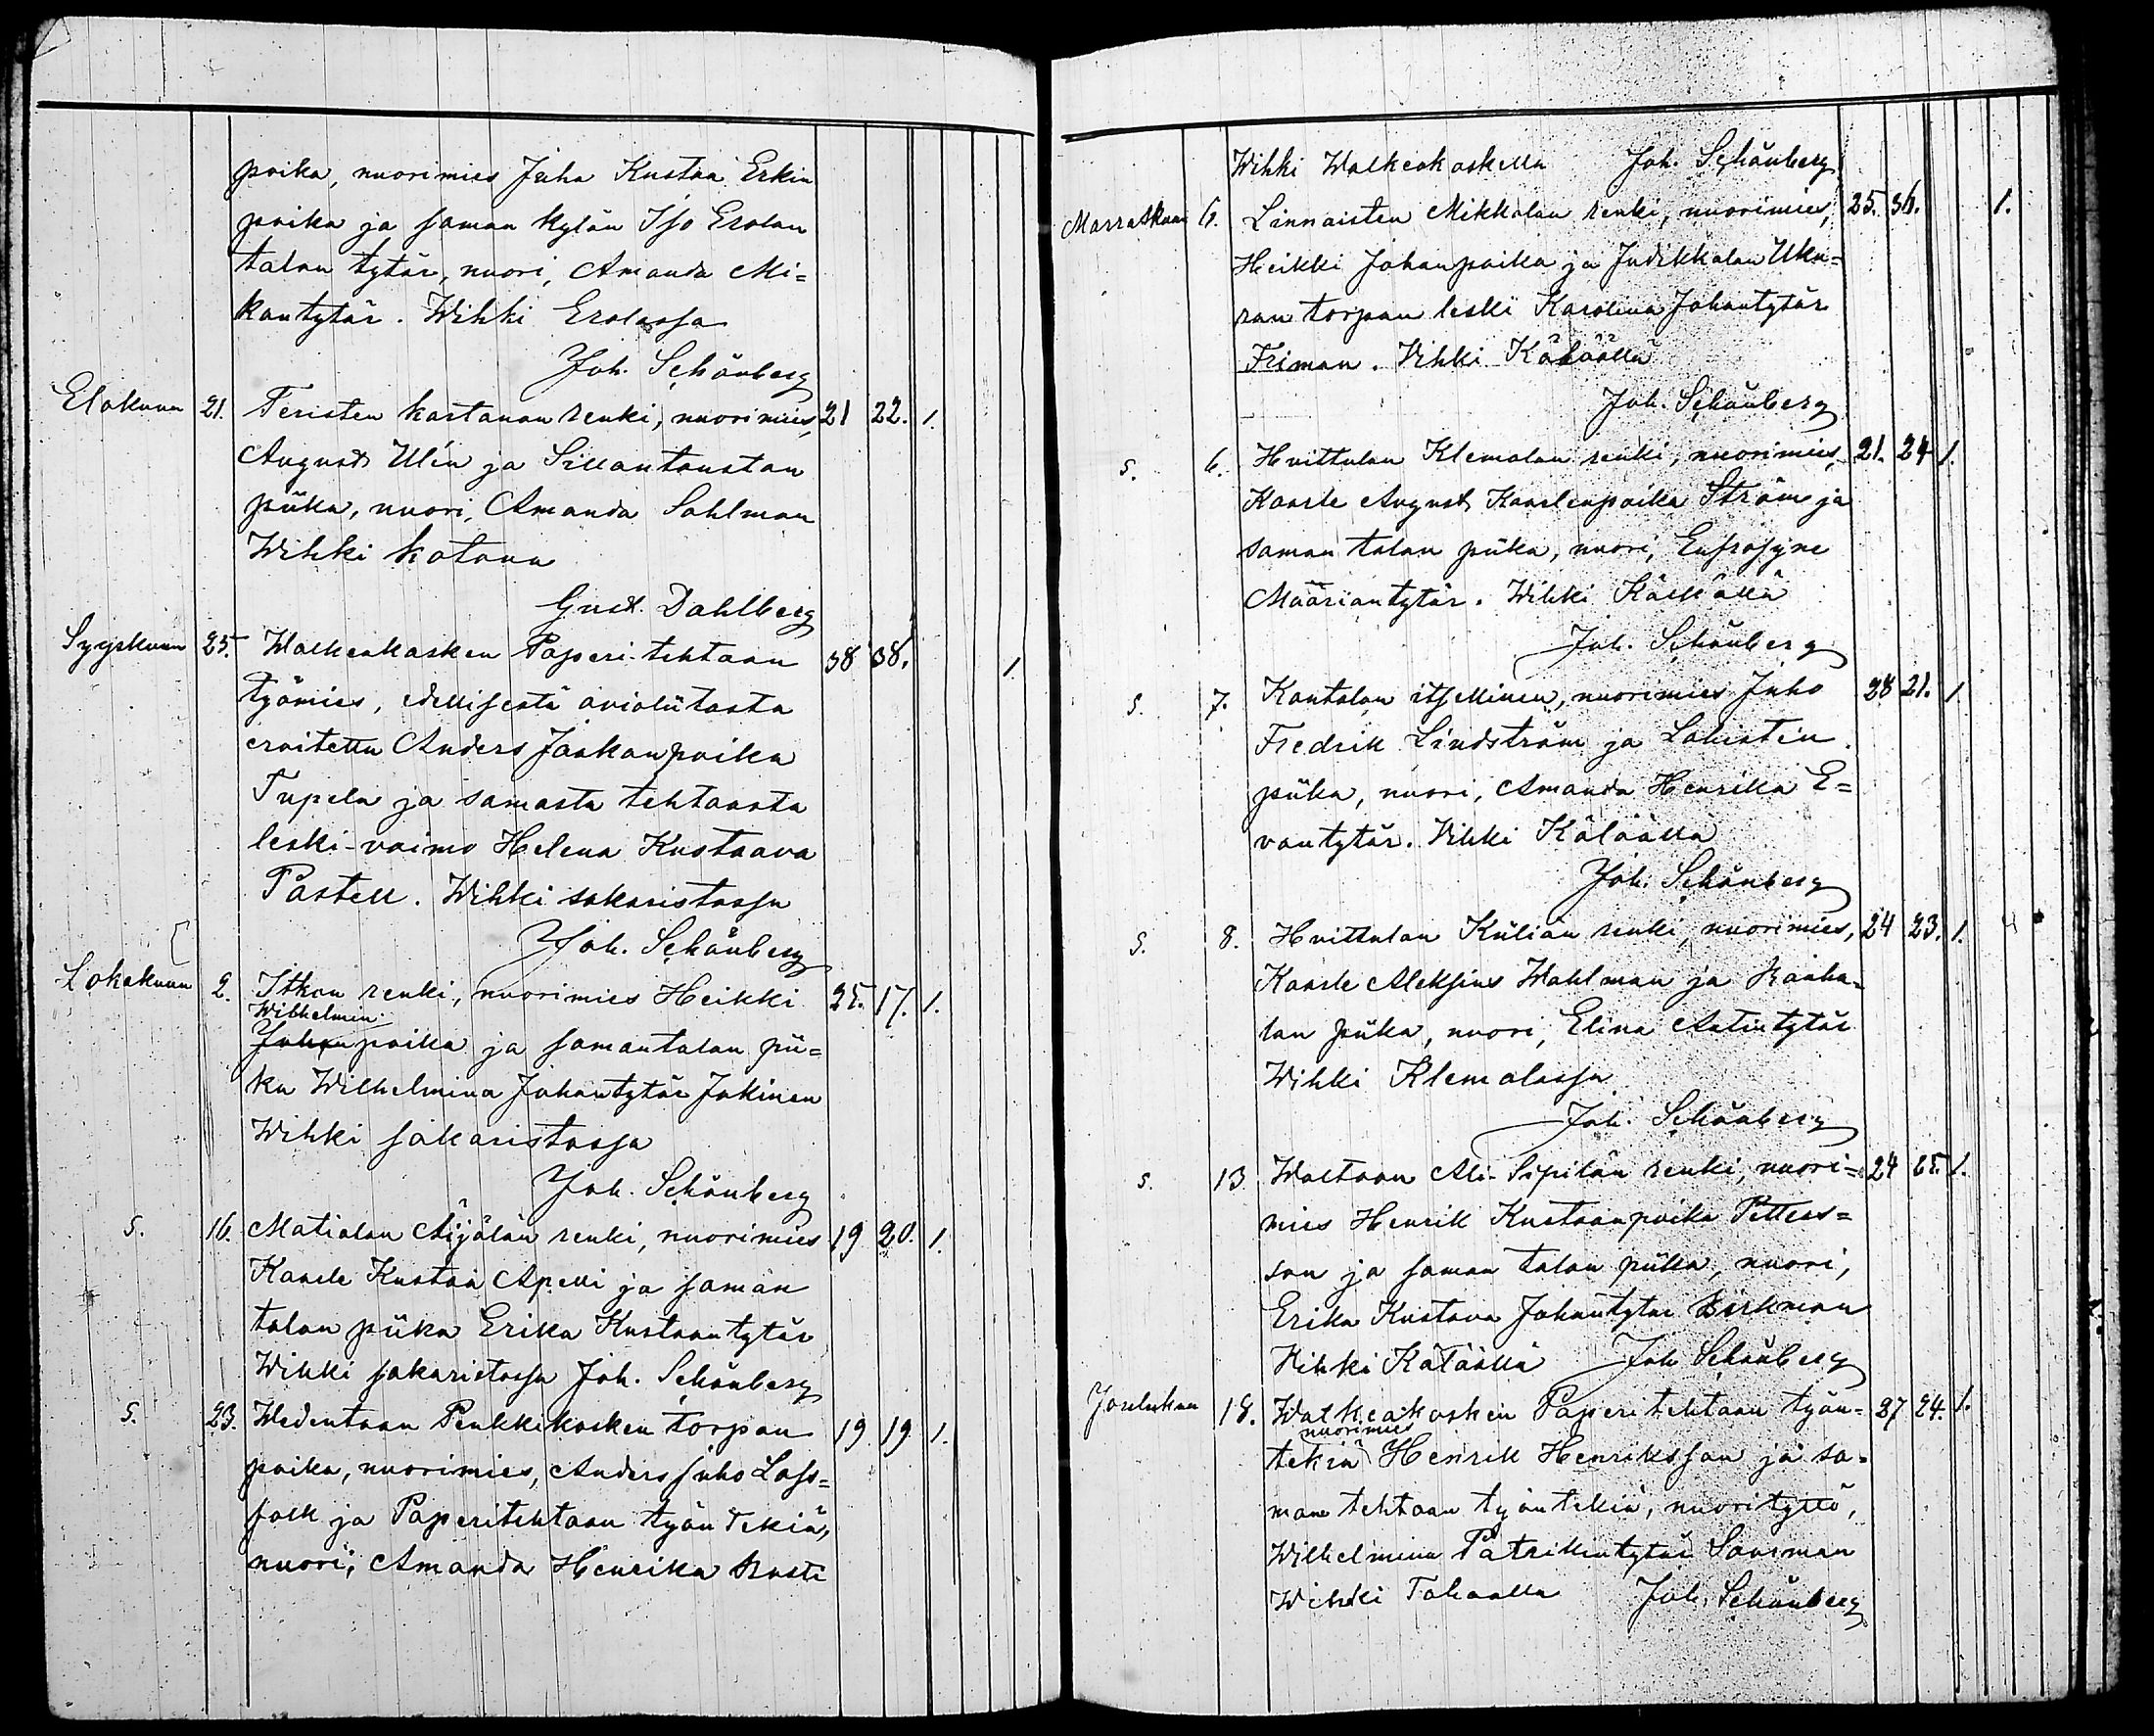 poika, nuorimies Juha Kustaa Erkin
poika ja saman kylän Iso Erolan
talon tytär, nuori, Amanda Mi=
kontytär. Wihki Erolassa
Joh. Schönberg
Elokuun 21. Teristen kartanon renki, nuorimies, 21 22. 1.
August Ulin ja Sillantaustan
piika, nuori, Amanda Sahlman
Wihki kotona
Gust. Dahlberg
Syyskuun 25. Walkeakosken Paperi-tehtaan 38 38. 1
työmies, edellisestä avioliitosta
eroitettu Anders Jaakonpoika
Tupela ja samasta tehtaasta
leski-vaimo Helena Kustaava
Pastell. Wihki sakaristossa
Joh. Schönberg
Lokakuun 2. Itkon renki, nuorimies Heikki 25. 17. 1.
Wilhelmin
Johanpoika ja samantalon pii=
ka Wilhelmina Johantytär Jokinen
Wihki sakaristossa
Joh. Schönberg
S. 16. Matialan Äijälän renki, nuorimies 19 20. 1.
Kaarle Kustaa Apelli ja saman
talon piika Erika Kustaantytär
Wihki sakaristossa Joh. Schönberg
S. 23. Wedentaan Penkkikosken torpan 19 19 1.
poika, nuorimies, Anders Juho Lass=
folk ja Paperitehtaan työn tekiä,
nuori, Amanda Henrika Rusti
Wihki Walkeakoskella Joh. Schönberg
Marraskuun 6. Linnaisten Mikkolan renki, nuorimies, 25. 36. 1.
Heikki Johanpoika ja Judikkalan Uku=
ran torpan leski Karolina Johantytär
Friman. Vihki
Joh. Schönberg
S. 6. Huittulan Klemolan renki, nuorimies, 21. 24 1.
Kaarle August Kaarlenpoika Ström ja
saman talon piika, nuori, Eufrosyne
Määriantytär. Wihki
Joh. Schönberg
S. 7. Kantolan itsellinen, nuorimies Juho 28 21. 1
Fredrik Lindström ja Lahisten
piika, nuori, Amanda Henrika E=
vantytär. Vihki
Joh. Schönberg
S. 8. Huittulan Küliän renki, nuorimies, 24 23. 1.
Kaarle Aleksius Wahlman ja Kaaha=
lan piika, nuori, Elina Antintytär
Wihki Klemolassa
Joh. Schönberg
S. 13 Waltaan Ali-Sipilän renki, nuori= 24 25. 1.
mies Henrik Kustaanpoika Petters=
son ja saman talon piika, nuori,
Erika Kustava Johantytär Birkman
Wihki Joh Schönberg
Joulukuun 18. Walkeakosken Paperitehtaan työn= 27 24. 1.
nuorimies
tekiä Henrik Henriksson ja sa=
man tehtaan työntekiä, nuori tyttö,
Wilhelmina Patrikintytär Saarman
Wihki Joh. Schönberg